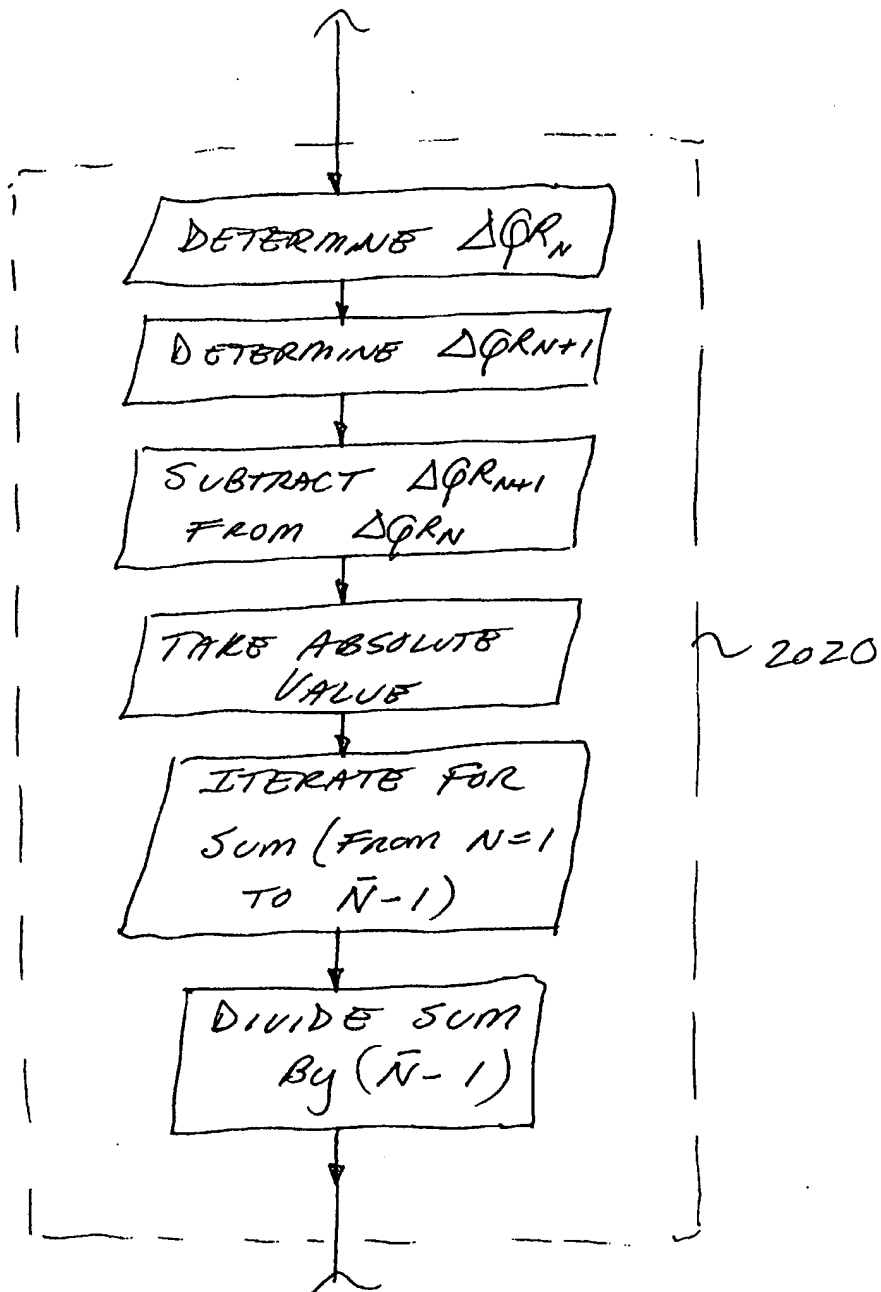 DETERMINE ΔφR_N
DETERMINE ΔφR_N+1
SUBTRACT ΔφR_N+1
FROM ΔφR_N
TAKE ABSOLUTE
VALUE
2020
ITERATE FOR
SUM (FROM N=1
TO N̄-1)
DIVIDE SUM
By (N̄-1)